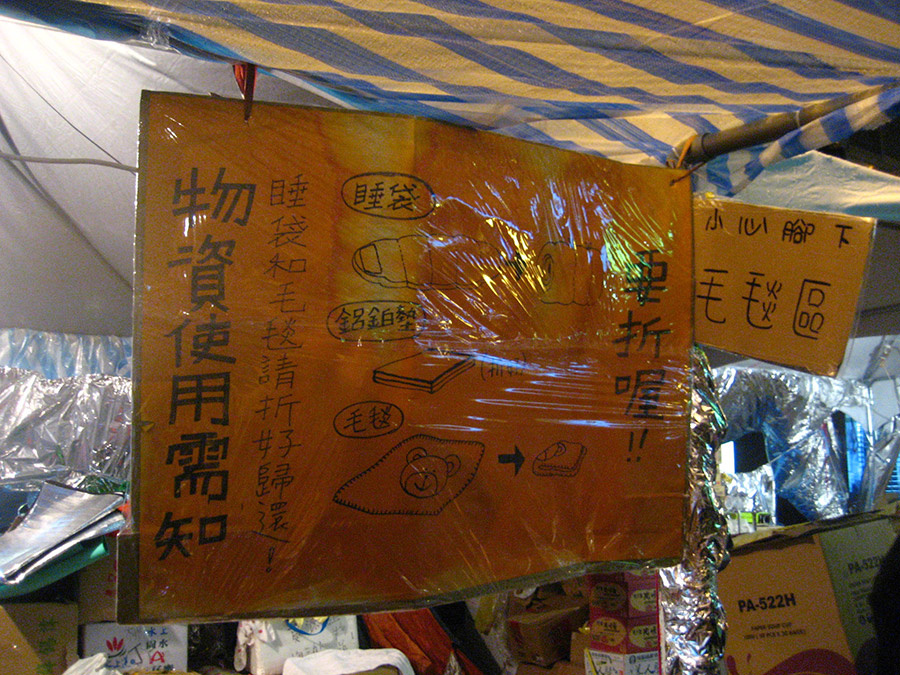 物資使用需知
睡袋和毛毯請折好歸還!
睡袋
鋁鉑墊
毛毯
要折喔!!
小心腳下
毛毯區
PA-522H
PA-522H